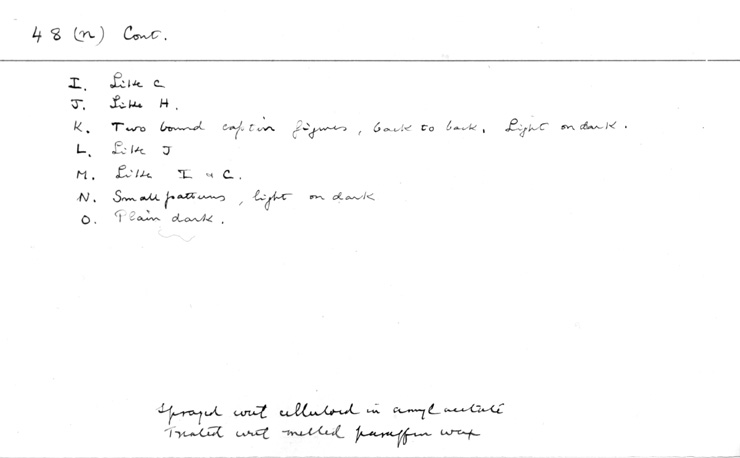 48 (n) Cont.
I. Like C
J. Like H.
K. Two bound captive figures, back to back. Light on dark.
L. Like J
M. Like I & C.
N. Small patterns, light on dark
O. Plain dark.
Sprayed wit celluloid in amyl acetate
Treated wit melted paraffin wax